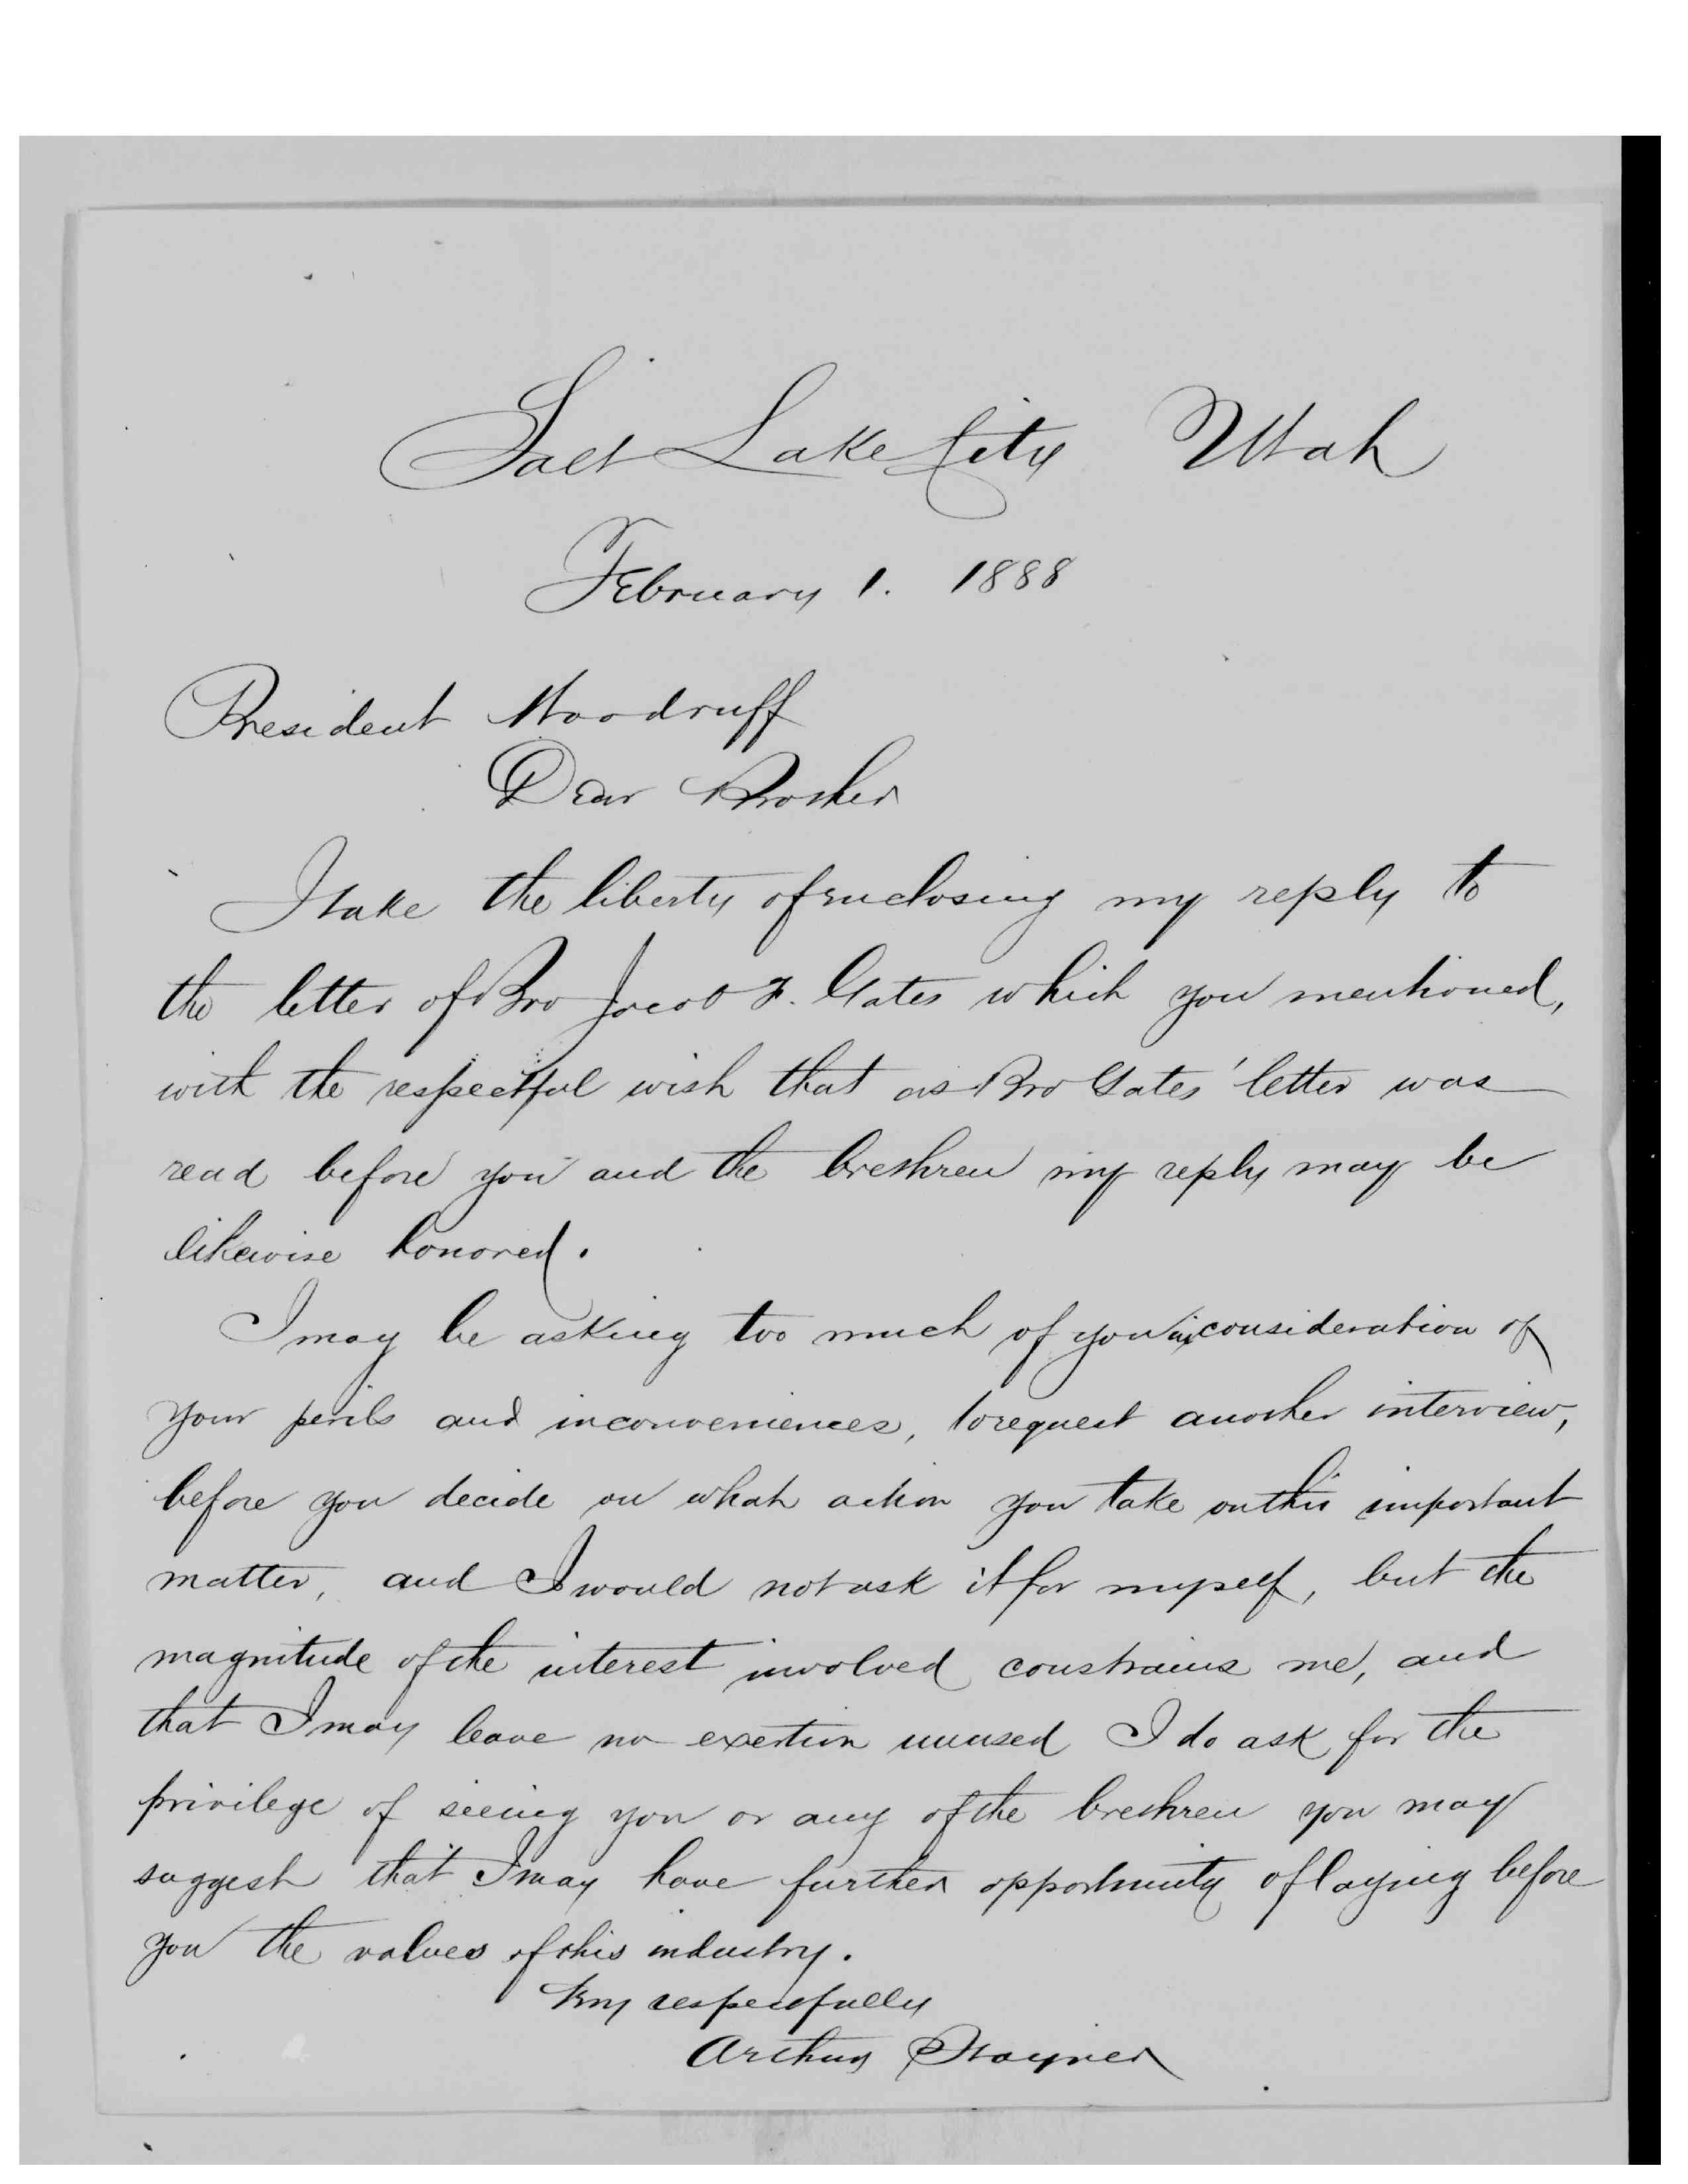 Salt Lake City Utah
February 1. 1888
President Woodruff
Dear Brother
I take the liberty of enclosing my reply to
the letter of Bro Jacob F. Gates which you mentioned,
with the respectful wish that as Bro Gates' letter was
read before you and the brethren my reply may be
likewise honored.
I may be asking too much of you in consideration of
your perils and inconveniences, to request another interview,
before you decide on what action you take on this important
matter, and I would not ask it for myself, but the
magnitude of the interest involved constrains me, and
that I may leave no exertion unused I do ask for the
privilege of seeing you or any of the brethren you may
suggest that I may have further opportunity of laying before
you the values of this industry.
Very respectfully
Arthur Stayner